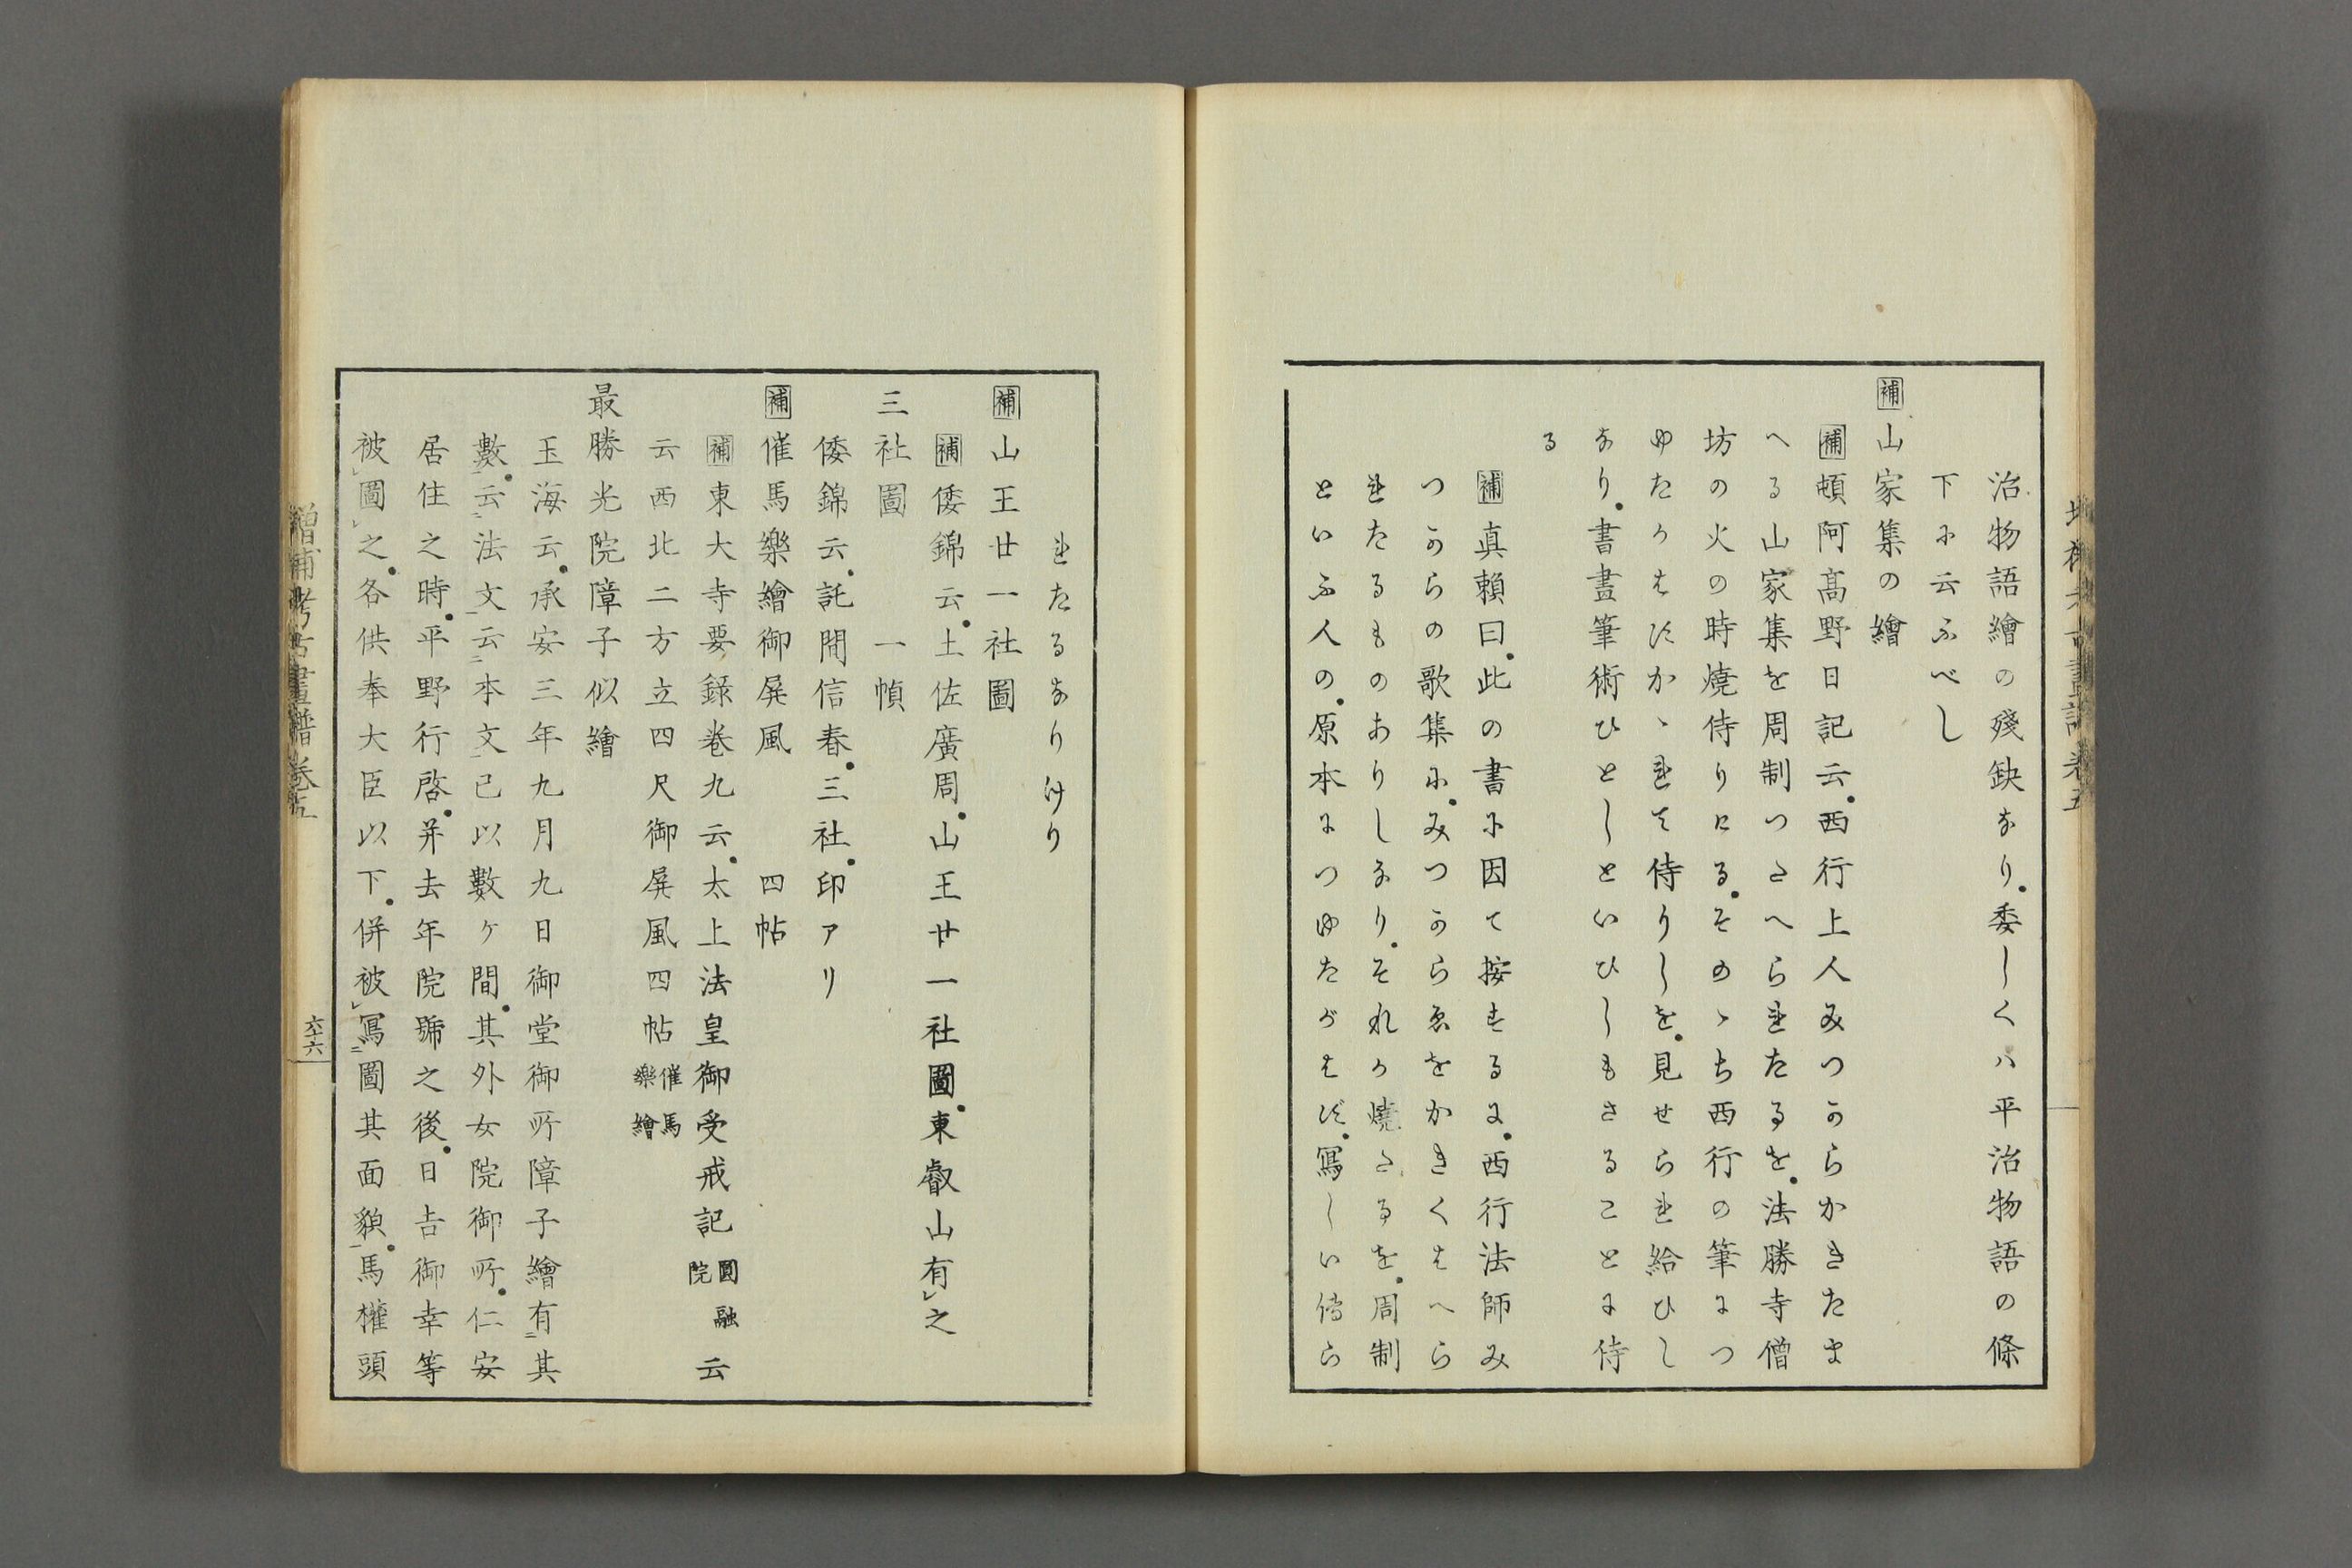 治物語繪の殘缺なり。委しくハ平治物語の條
下に云ふべし
補山家集の繪
補頓阿高野日記云。西行上人みつからかきたま
へる山家集を周制つたへられたるを。法勝寺僧
坊の火の時燒侍りにる。そのゝち西行の筆につ
ゆたかはすかゝれて侍りしを。見せられ給ひし
なり。書畫筆術ひとしといひしもさることに侍
る
補真賴曰。此の書に因て按するに。西行法師み
つからの歌集に。みつからゑをかきくはへら
れたるものありしなり。それか燒たるを。周制
といふ人の。原本につゆたがはず。寫しい傳ら
れたるなりけり
補山王廿一社圖
補倭錦云。土佐廣周。山王廿一社圖。東叡山有㆑之
三社圖 一幀
倭錦云。託間信春。三社。印アリ
補催馬樂繪御屏風 四帖
補東大寺要錄卷九云。太上法皇御受戒記圓融院云
云西北二方立四尺御屏風四帖催馬樂繪
最勝光院障子似繪
玉海云。承安三年九月九日御堂御所障子繪有㆓其
數㆒。云㆓法文㆒云㆓本文㆒已以數ヶ間。其外女院御所。仁安
居住之時。平野行啓。并去年院號之後。日吉御幸等
被㆑圖㆑之。各供奉大臣以下。併被㆑寫㆓圖其面貌㆒。馬權頭
增補考古畫譜卷五
六十六